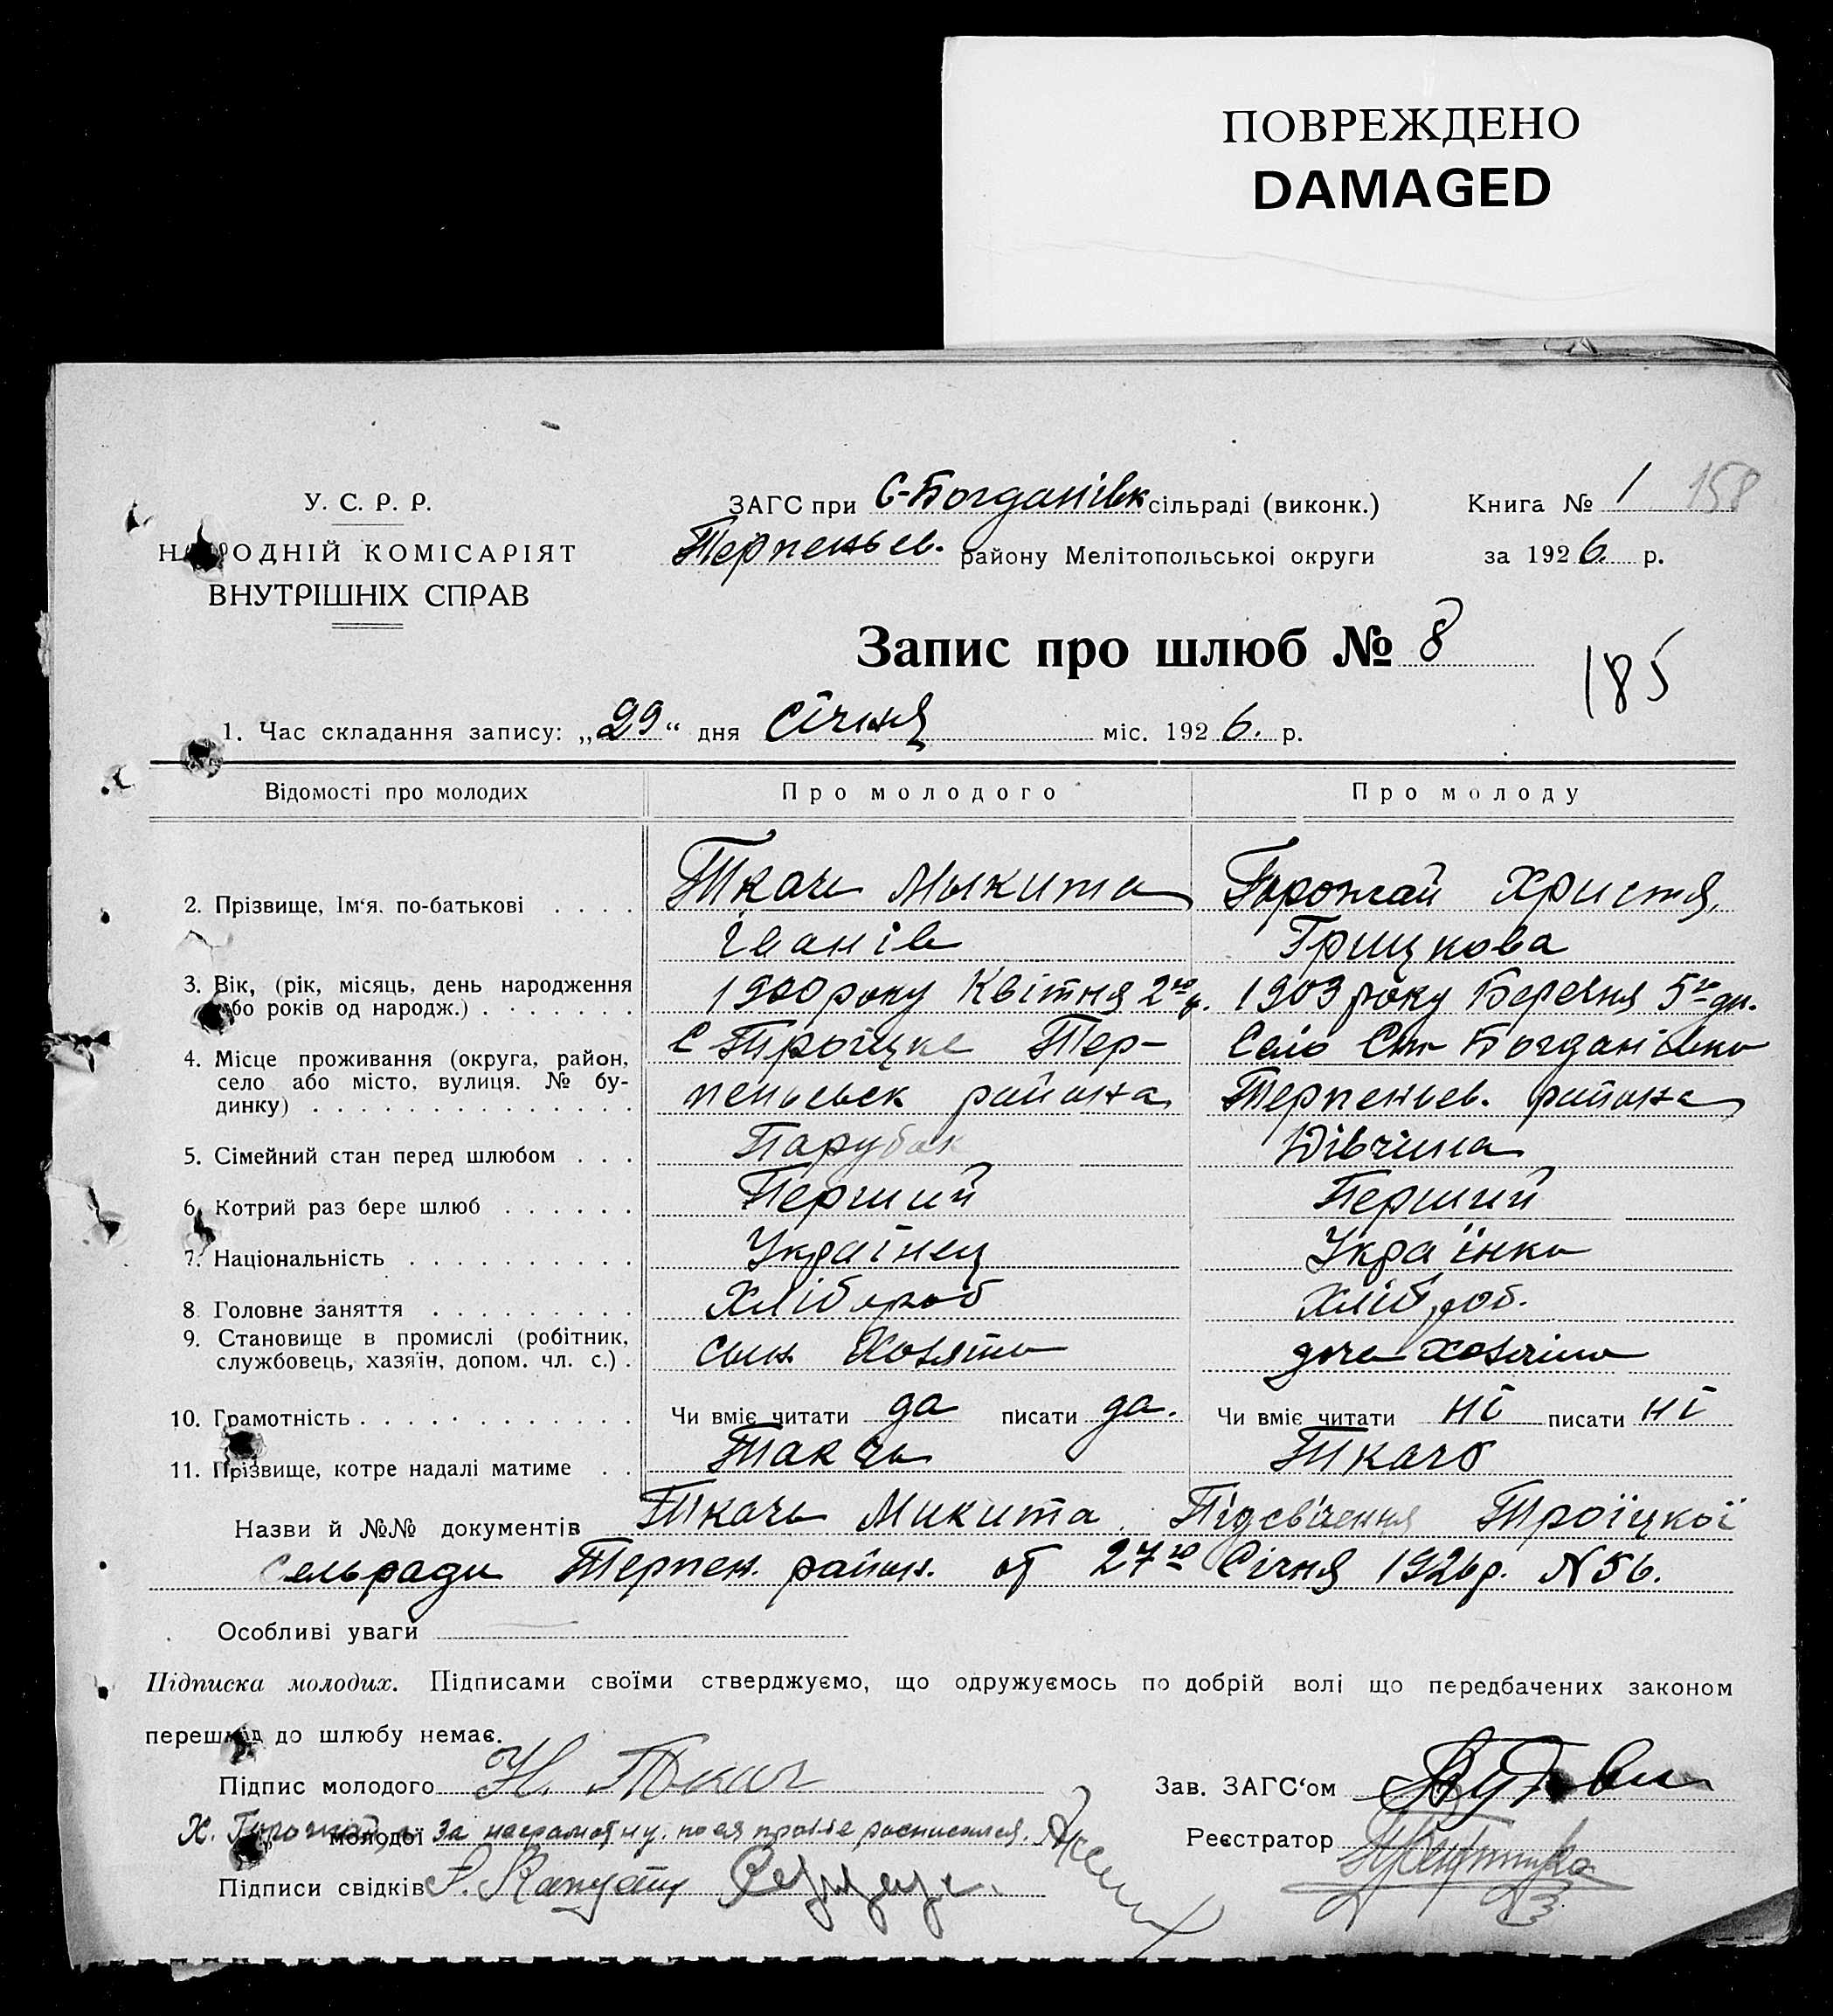 ПОВРЕЖДЕНО
DAMAGED
У. С. Р. Р.
НАРОДНІЙ КОМІСАРІЯТ
ВНУТРІШНІХ СПРАВ
ЗАГС при С-Богданівк сільраді (виконк.)
Терпеньев. району Мелітопольської округи
Книга № 1 158
за 1926. р.
Запис про шлюб № 8
185
1. Час складання запису: „29“ дня Січня міс. 1926. р.
Відомості про молодих Про молодого Про молоду
2. Прізвище, Ім‘я, по-батькові Ткачь Мыкита Горожай Христя,
Іванів Грицкова
3. Вік, (рік, місяць, день народження або років од народж.) 1900 року Квітня 2го д. 1903 року Березня 5го дн.
4. Місце проживання (округа, район, С Троїцке Тер- Село Ст Богданівка
село або місто, вулиця, № бу-
динку) пеньевск района Терпеньев. района
5. Сімейний стан перед шлюбом Парубок Дівчина
6. Котрий раз бере шлюб Перший Перший
7. Національність Українец Українка
8. Головне заняття Хлібороб Хлібороб.
9. Становище в промислі (робітник,
службовець, хазяїн, допом. чл. с.) син Хозяина доч Хозяина
10. Грамотність Чи вміє читати да писати да. Чи вміє читати ні писати ні
11. Прізвище, котре надалі матиме Ткачь Ткачь
Назви й №№ документів Ткачь Микита. Підсвічення Троїцкої
Сельради Терпен. район. от 27го Січня 1926 р. N 56.
Особливі уваги
Підписка молодих. Підписами своїми стверджуємо, що одружуємось по добрій волі що передбачених законом
перешкід до шлюбу немає.
Підпис молодого Н. Ткач Зав. ЗАГС‘ом
Х. Горожай, „ молодої за неграмотну, по ея прозбе росписался. Реєстратор
Підписи свідків